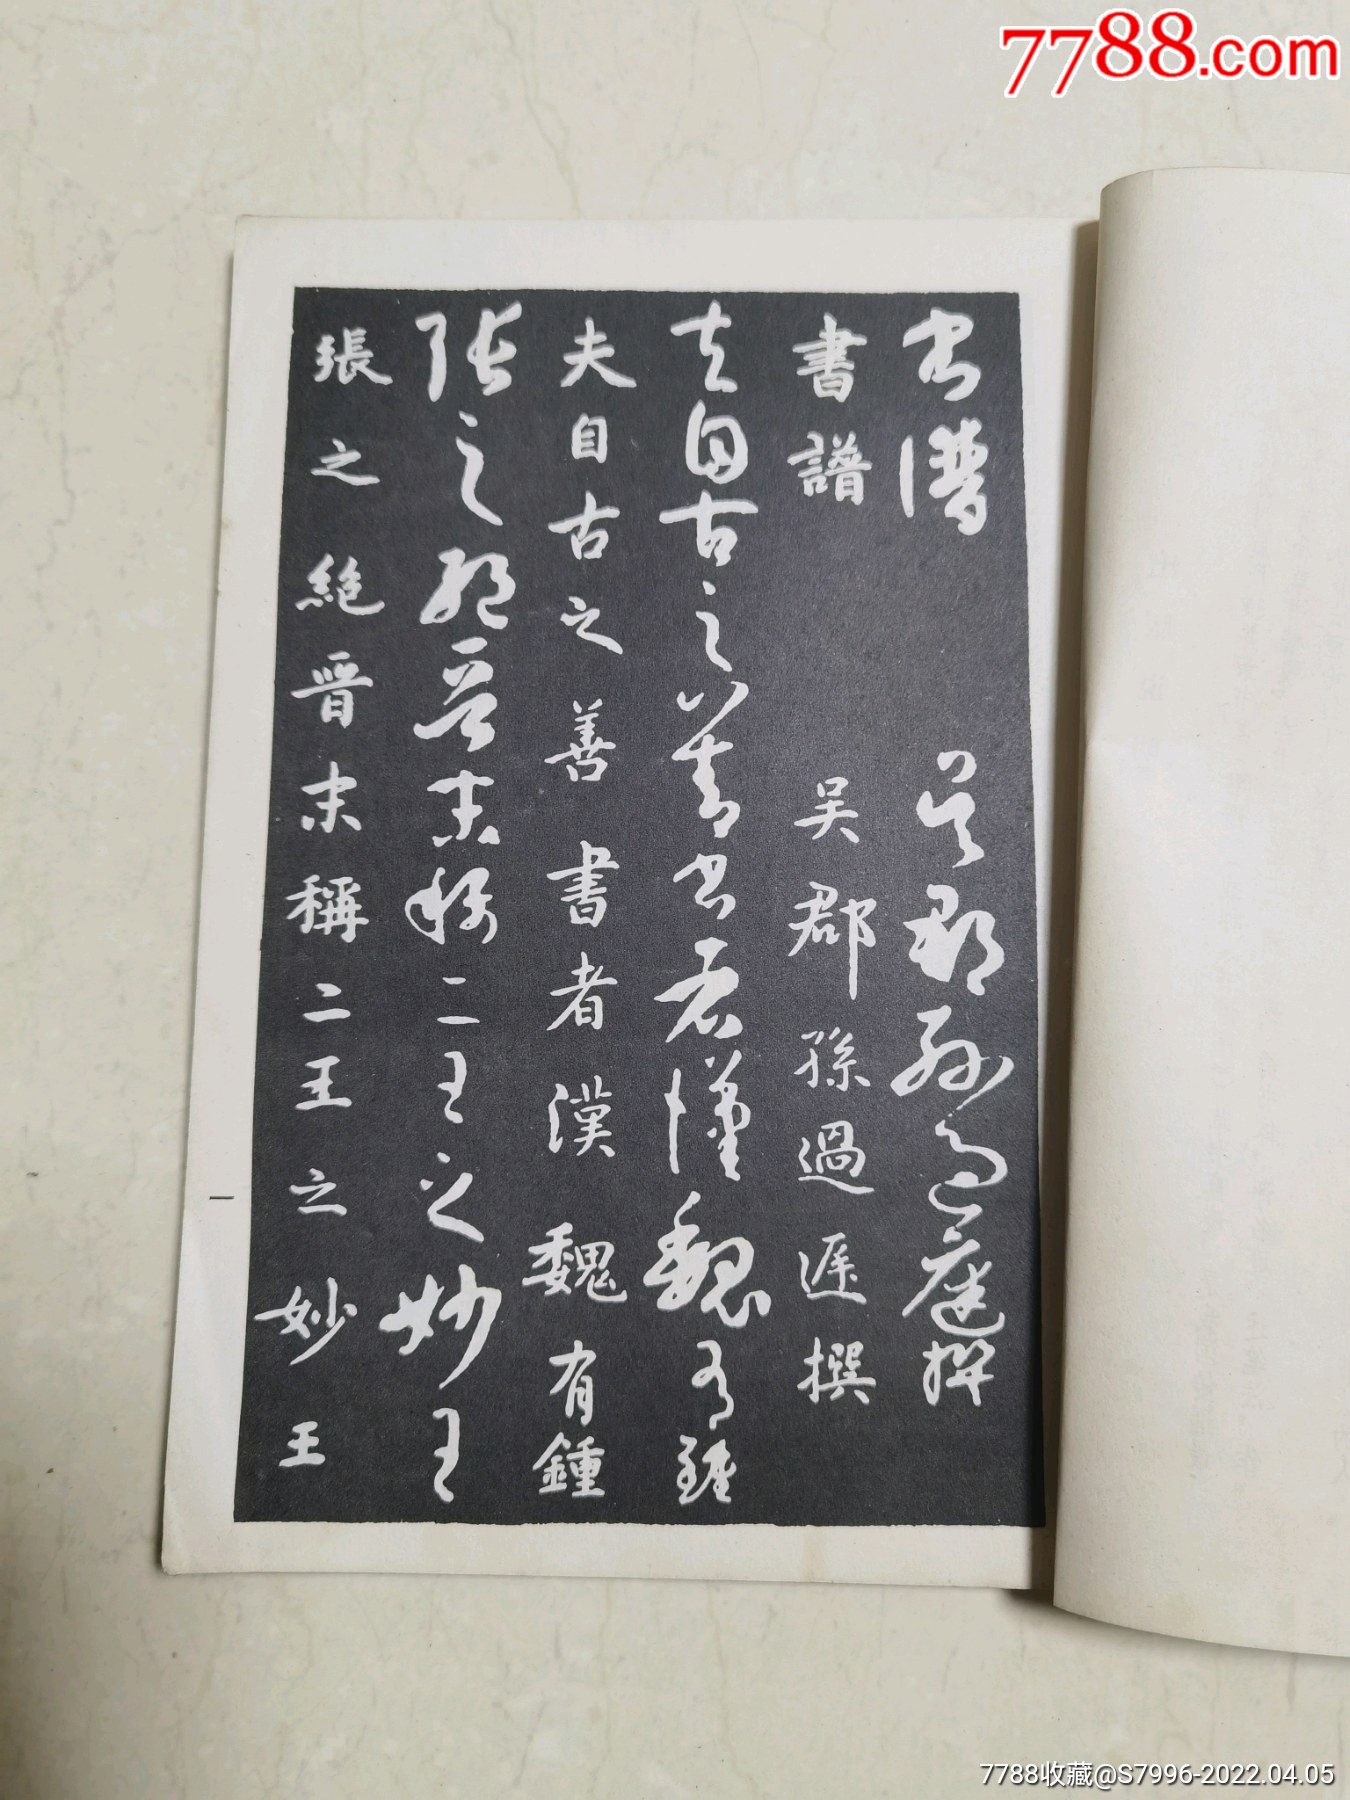 7788.com
書譜 吳郡孫過庭撰
書譜 吳郡孫過庭撰
夫自古之善書者漢魏有鍾
夫自古之善書者漢魏有鍾
張之絕晉末稱二王之妙王
張之絕晉末稱二王之妙王
一
7788收藏@S7996-2022.04.05